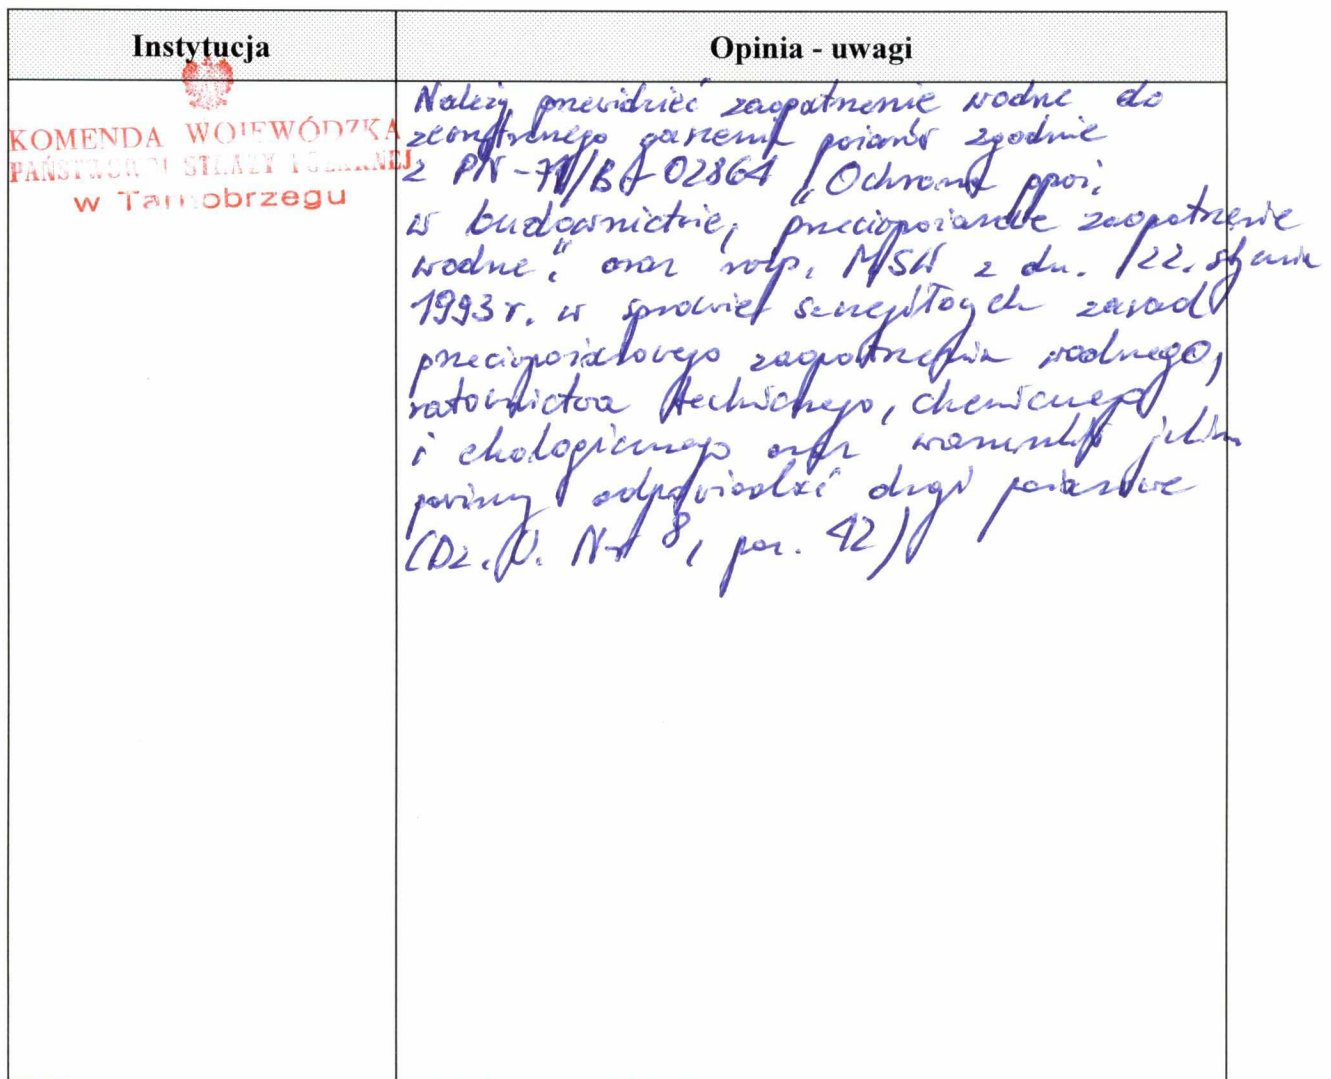 Instytucja
Opinia - uwagi
KOMENDA WOJEWÓDZKA
PAŃSTWOWEJ STRAŻY POŻARNEJ
w Tarnobrzegu
Należy przewidzieć zaopatrzenie wodne do
zewnętrznego gaszenia pożarów zgodnie
z PN-71/B-02864 "Ochrona ppoż.
w budownictwie, przeciwpożarowe zaopatrzenie
wodne", oraz rozp. MSW z dn. 22. stycznia
1993 r. w sprawie szczegółowych zasad
przeciwpożarowego zaopatrzenia wodnego,
ratownictwa technicznego, chemicznego
i ekologicznego oraz warunków jakim
powinny odpowiadać drogi pożarowe
(Dz. U. Nr 8, poz. 42)